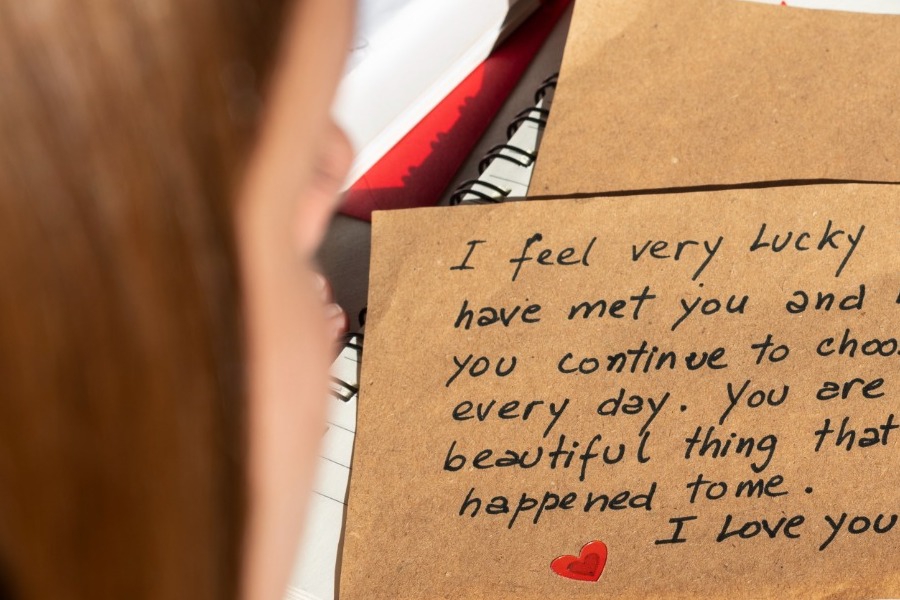 I feel very Lucky
have met you and
you continue to
every day. You are
beautiful thing that
happened to me.
I Love you